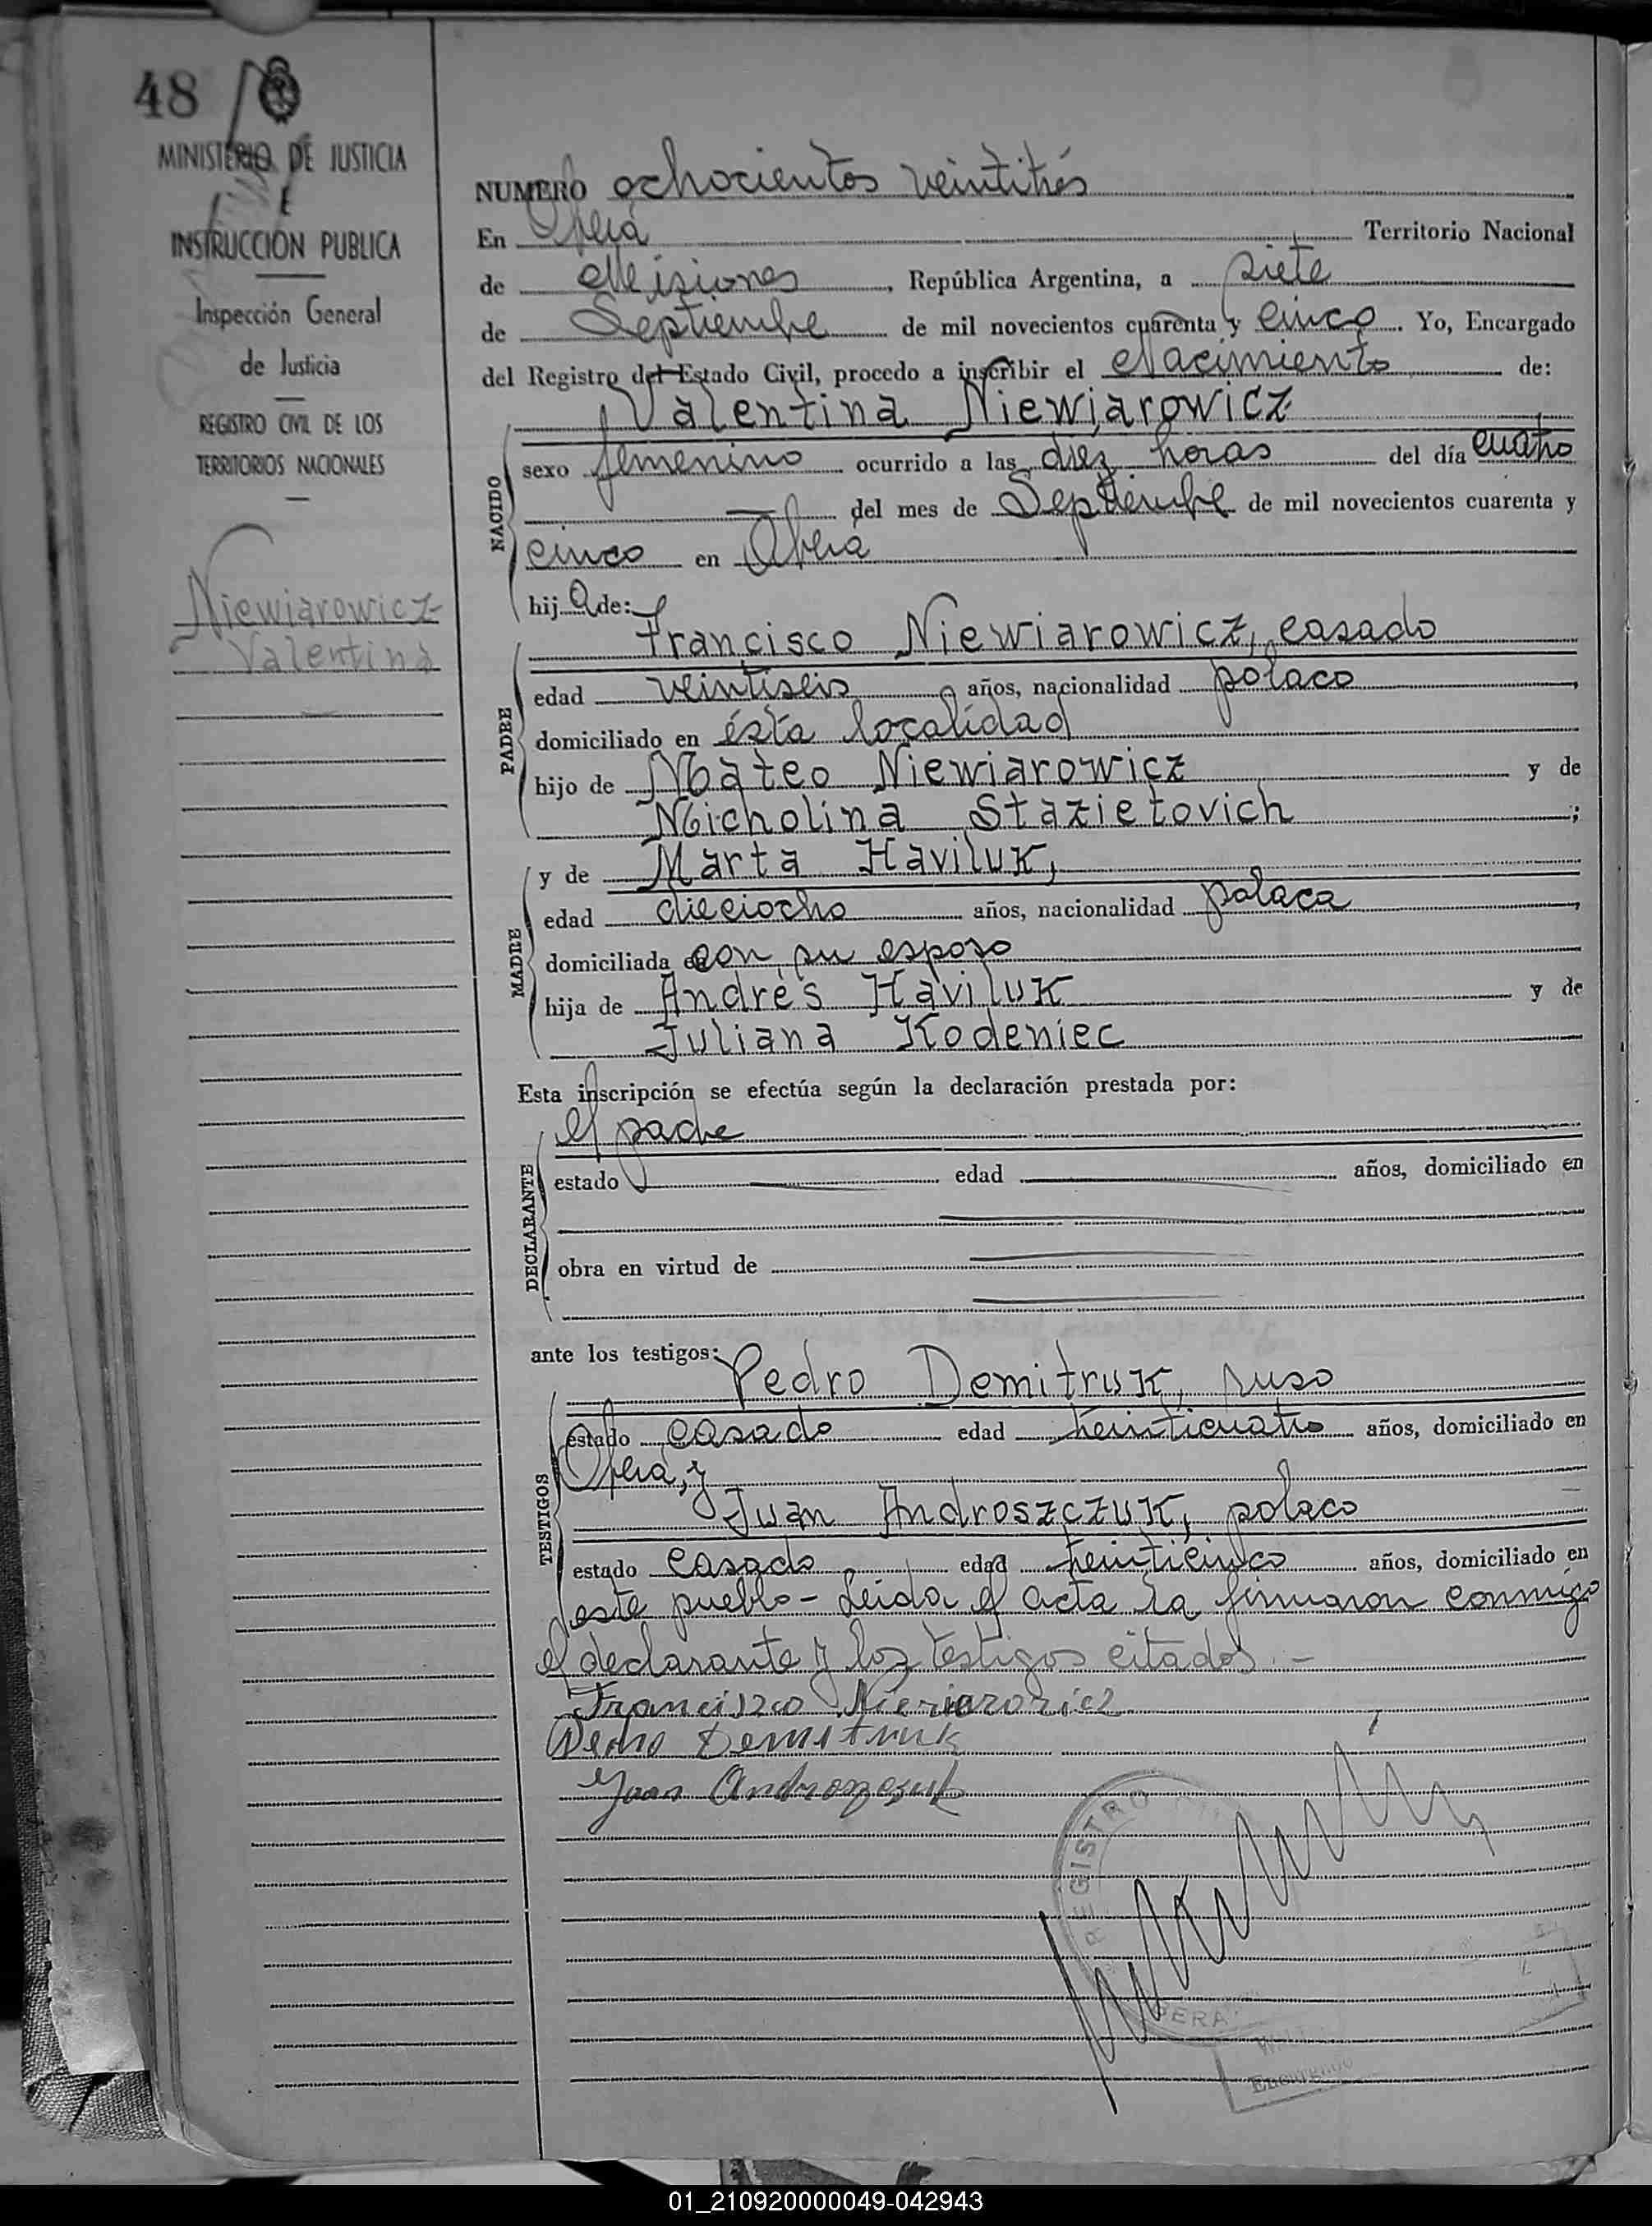 48
MINISTERIO DE JUSTICIA
E
INSTRUCCIÓN PUBLICA
Inspección General
de Justicia
REGISTRO CIVIL DE LOS
TERRITORIOS NACIONALES
Niewiarowicz
Valentina
NUMERO ochocientos veintitrés
En Oberá Territorio Nacional
de Misiones, República Argentina, a siete
de Septiembre de mil novecientos cuarenta y cinco. Yo, Encargado
del Registro del Estado Civil, procedo a inscribir el Nacimiento de:
Valentina Niewiarowicz
NACIDO
sexo femenino ocurrido a las diez horas del día cuatro
del mes de Septiembre de mil novecientos cuarenta y
cinco en Oberá
hij a de:
Francisco Niewiarowicz, casado
PADRE
edad veintiseis años, nacionalidad polaco,
domiciliado en ésta localidad
hijo de Mateo Niewiarowicz y de
Micholina Stazietovich;
y de Marta Haviluk,
MADRE
edad dieciocho años, nacionalidad polaca,
domiciliada con su esposo
hija de Andrés Haviluk y de
Juliana Kodeniec
Esta inscripción se efectúa según la declaración prestada por:
el padre
DECLARANTE
estado edad años, domiciliado en
obra en virtud de
ante los testigos:
Pedro Demitruk, ruso
TESTIGOS
estado casado edad veinticuatro años, domiciliado en
Oberá, y
Juan Androszczuk, polaco
estado casado edad veinticinco años, domiciliado en
este pueblo - Leida el acta la firmaron conmigo
el declarante y los testigos citados.-
Francisco
Pedro Demitruk
Juan
REGISTRO
OBERA
ENCARGADO
01_210920000049-042943